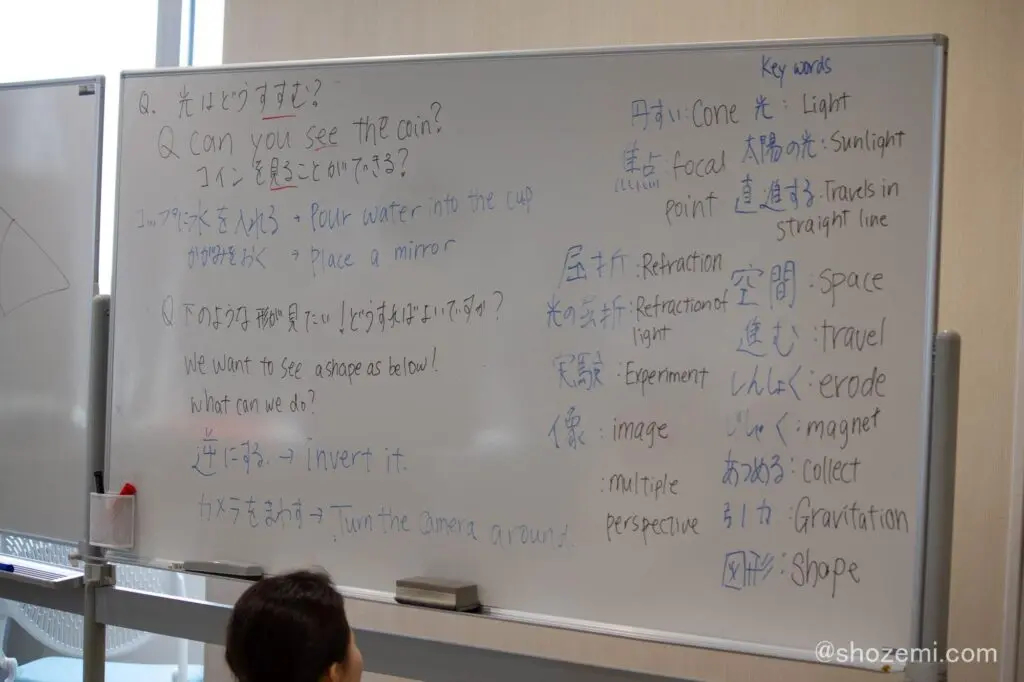 Q. 光はどうすすむ?
Q can you see the coin?
コインを見ることができる?
コップに水を入れる → Pour water into the cup
かがみをおく → place a mirror
Q 下のような形が見たい!どうすればよいですか?
We want to see a shape as below!
what can we do?
逆にする. → invert it.
カメラをまわす → Turn the camera around.
Key words
円すい: Cone
焦点: focal
point
屈折: Refraction
光の屈折: Refraction of
light
実験: Experiment
像: image
: multiple
perspective
光: Light
太陽の光: Sunlight
直進する: Travels in
straight line
空間: space
進む: travel
しんしょく: erode
: magnet
あつめる: collect
引力: Gravitation
図形: Shape
@shozemi.com